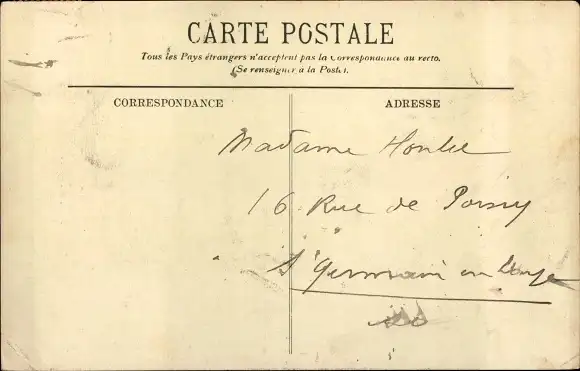 CARTE POSTALE
Tous les Pays étrangers n'acceptent pas la Correspondance au recto.
(Se renseigner à la Poste).
CORRESPONDANCE
ADRESSE
Madame
16 Rue de Poissy
St Germain en Laye